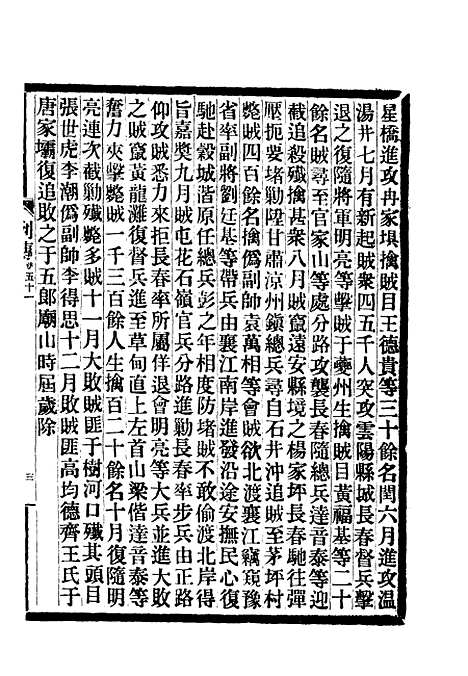 星橋進攻冉家埧擒賊目王德貴等三十餘名閏六月進攻温
湯井七月有新起賊衆四五千人突攻雲陽縣城長春督兵擊
退之復隨將軍明亮等擊賊于夔州生擒賊目黃福基等二十
餘名賊尋至官家山等處分路攻襲長春隨總兵達音泰等迎
截追殺殲擒甚衆八月賊竄遠安縣境之楊家坪長春馳往彈
壓扼要堵勦陞甘肅涼州鎮總兵尋自石井沖追賊至茅坪村
斃賊四百餘名擒僞副帥袁萬相等會賊欲北渡襄江竊窺豫
省率副將劉廷基等帶兵由襄江南岸進發沿途安撫民心復
馳赴穀城諧原任總兵彭之年相度防堵賊不敢偷渡北岸得
旨嘉獎九月賊屯花石嶺官兵分路進勦長春率步兵由正路
仰攻賊悉力來拒長春率所屬佯退會明亮等大兵並進大敗
之賊竄黃龍灘復督兵進至草甸直上左首山梁偕達音泰等
奮力夾擊斃賊一千三百餘人生擒百二十餘名十月復隨明
亮連次截勦殲斃多賊十一月大敗賊匪于樹河口殲其頭目
張世虎李潮僞副帥李得思十二月敗賊匪高均德齊王氏于
唐家壩復追敗之于五郎廟山時屆歲除
列傳卷五十一
三